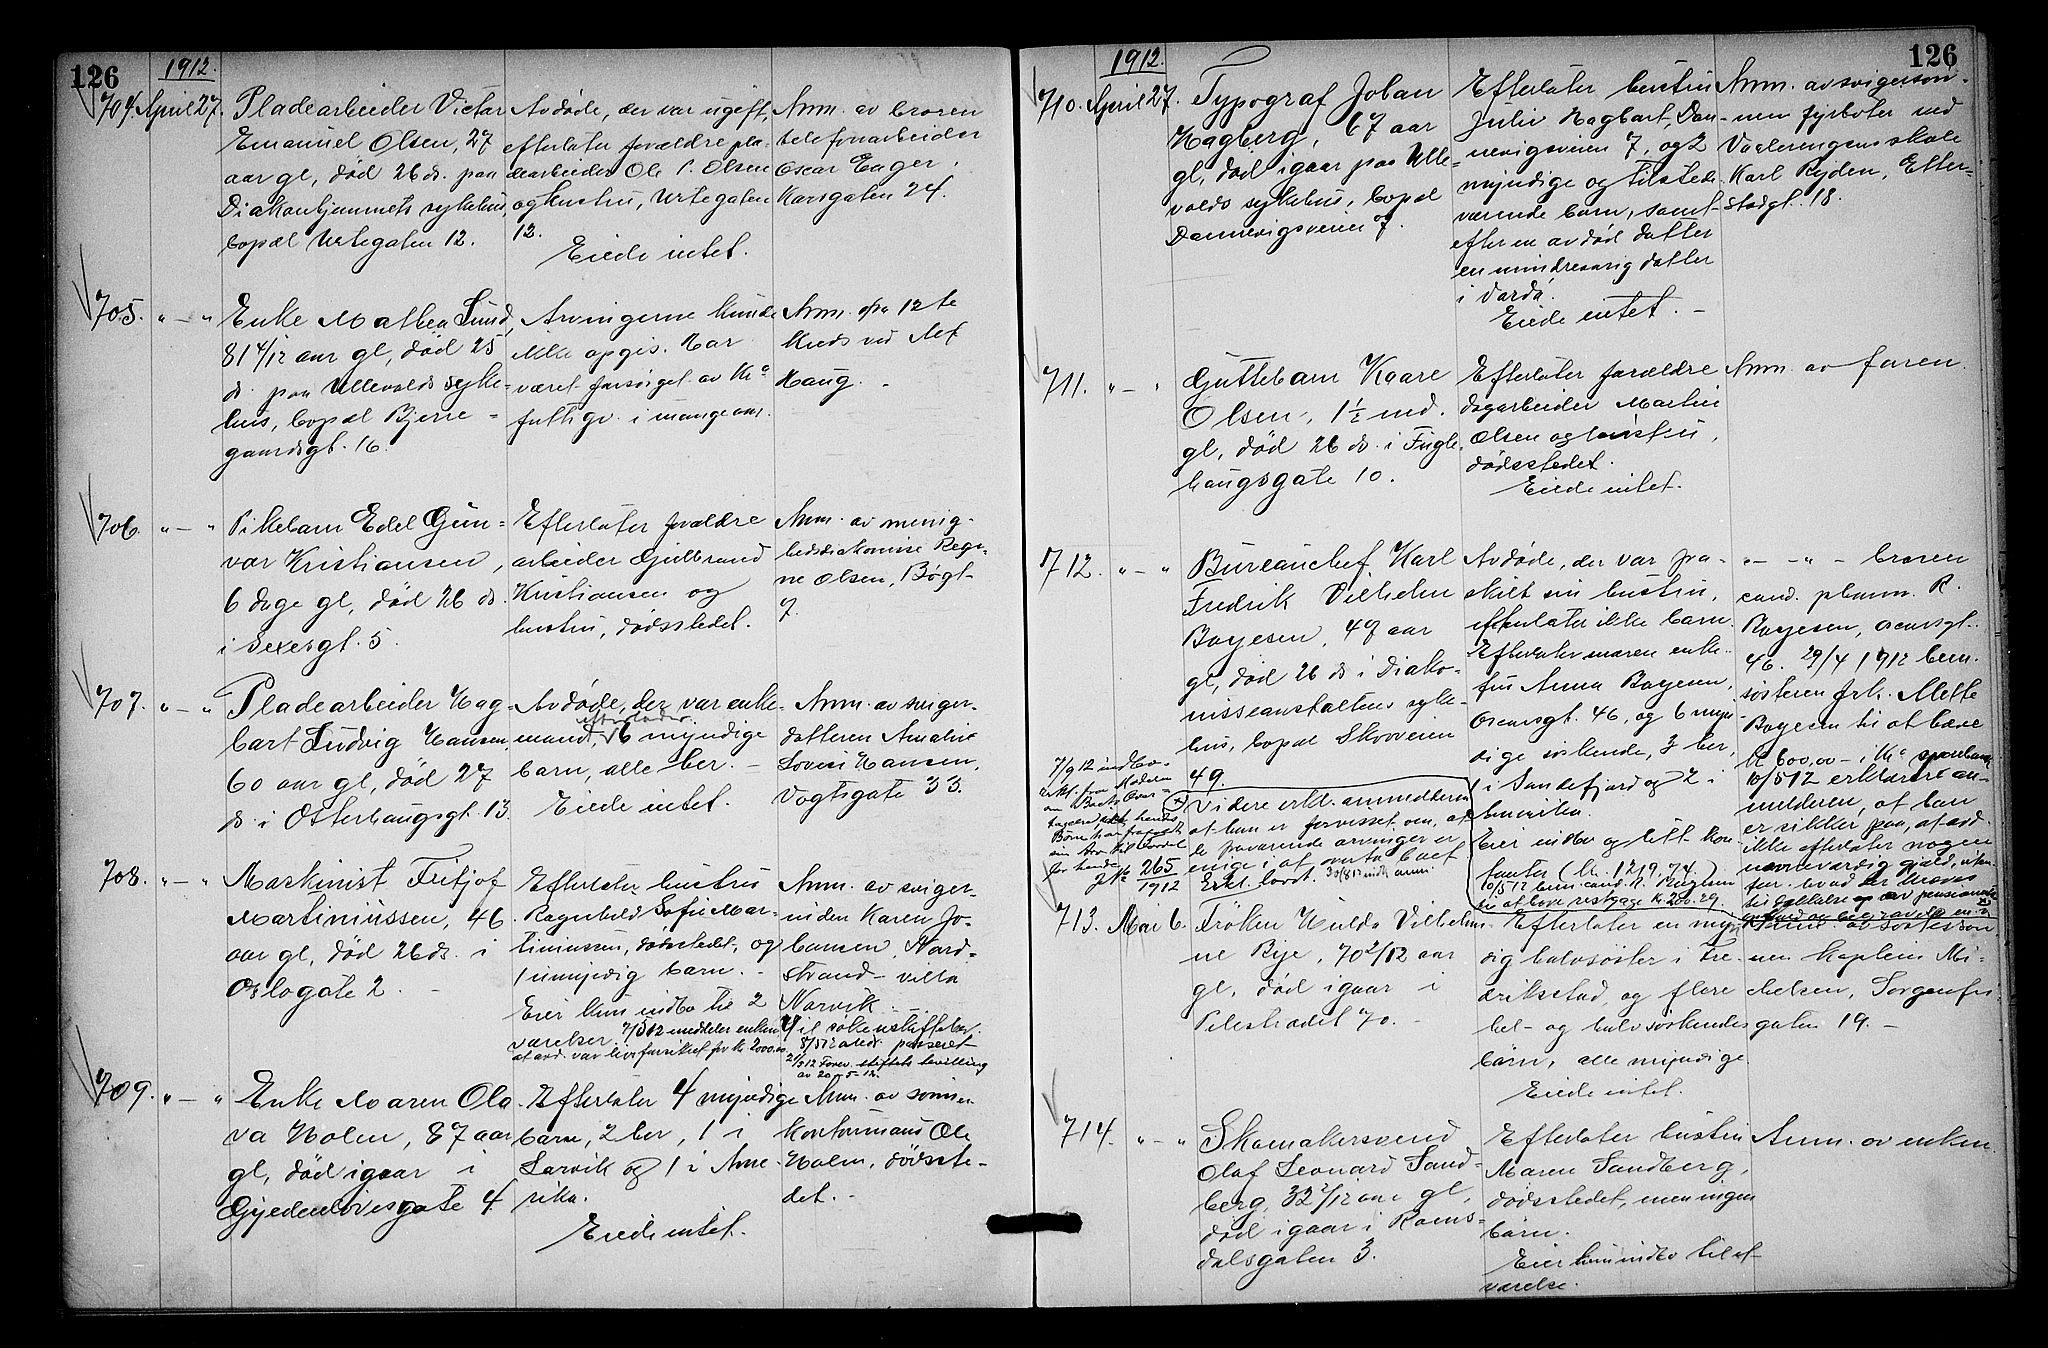 126
1912.
704. April 27.
Pladearbeider Victor
Emanuel Olsen, 27
aar gl, død 26 ds. paa
Diakonhjemmets sykehus,
bopæl Urtegaten 12.
Avdøde, der var ugift,
efterlater forældre pla-
dearbeider Ole P. Olsen
og hustru, Urtegaten
12.
Eiede intet.
Anm. av broren
telefonarbeider
Oscar Enger,
Karsgaten 24.
705. " — "
Enke Mathea Lund,
81 4/12 aar gl, død 25
ds. paa Ullevolds syke-
hus, bopæl Bjerre-
gaardsgt. 16.
Arvingerne kunde
ikke opgis. Har
været forsørget av Kra
fattigv. i mange aar.
Anm. fra 12te
Kreds ved Alf
Haug.
706. " — "
Pikebarn Edel Gun-
vor Kristiansen,
6 dage gl, død 26 ds.
i Sexesgt. 5.
Efterlater forældre
arbeider Gulbrand
Kristiansen og
hustru, dødsstedet.
Anm. av menig-
hedsdiakonisse Regi-
ne Olsen, Bøgt-
7.
707. " — "
Pladearbeider Hag-
bart Ludvig Hansen,
60 aar gl, død 27
ds. i Osterhausgt. 13.
Avdøde, der var enke-
efterlader
mand, 6 myndige
barn, alle her. —
Eiede intet.
Anm. av sviger-
datteren Amalie
Lovise Hansen,
Vogtsgate 33.
708. " — "
Maskinist Fritjof
Martiniussen, 46
aar gl, død 26 ds. i
Oslogate 2.
Efterlater hustru
Ragnhild Sofie Mar-
tiniussen, dødsstedet, og
1 umyndig barn. —
Eier kun indbo til 2
værelser. 7/5 12 meddeler enken
at avd. var livsforsikret for kr. 2000.00
Anm. av sviger-
inden Karen Jo-
hansen, Nord-
strand villa
Narvik.
Vil søke uskiftebev.
8/5 12 passeret
21/5 12 Forev. stiftets bevilling
av 20-5-12.
709. " — "
Enke Maren Ola-
va Holm, 87 aar
gl, død igaar i
Gyldenløvesgate 4
Efterlater 4 myndige
barn, 2 her, 1 i
Larvik og 1 i Ame-
rika.
Eiede intet.
Anm. av sønnen
Kontormand Ole
Holm, dødsste-
det.
126
1912.
710. April 27.
Typograf Johan
Hagberg, 67 aar
gl, død igaar paa Ulle-
volds sykehus, bopæl
Dannevigsveien 7.
Efterlater hustru
Julie Hagbart, Dan-
nevigsveien 7, og 2
myndige og tilstede-
værende barn, samt
efter en avdød datter
en mindreaarig datter
i Vardø.
Eiede intet. —
Anm. av svigersøn-
nen fyrbøter ved
Vaalerengens skole
Karl Ryden, Etter-
stadgt. 18.
711. " — "
Guttebarn Kaare
Olsen, 1½ md.
gl, død 26 ds. i Fugle-
haugsgate 10.
Efterlater forældre
dagarbeider Martin
Olsen og hustru,
dødsstedet.
Eiede intet.
Anm. av faren.
712. " — "
Bureauchef Karl
Fredrik Vilhelm
Boyesen, 49 aar
gl, død 26 ds i Diako-
nisseanstaltens syke-
hus, bopæl Skovveien
49.
Videre erkl. anmelderen
at han er forvisset om, at
de paavarende arvinger er
enige i at overta boet
Erkl. lovet.
7/9 12 indbe-
fra Moderen
J No 265/1912
Avdøde, der var fra-
skilt sin hustru,
efterlater ikke barn.
Efterlater moren enke-
fru Anna Boyesen,
Oscarsgt. 46, og 6 myn-
dige søskende, 3 her,
1 i Sandefjord og 2 i
Amerika.
Eier indbo og litt kon-
tanter (kr. 1219.74.)
10/5 12 bem. cand. R. Boyesen
til at hæve restgage kr. 200.29.
" — " — broren
cand. pharm. R.
Boyesen, Oscarsgt.
46. 29/4 1912 bem.
søsteren frk. Mette
Boyesen til at hæve
kr 600,00 — i Kra sparebank
10/5 12 erklærer an-
melderen, at han
er sikker paa, at avd.
ikke efterlater nogen
nævneværdig gjæld, uten
for hvad der kræves
713. Mai 6.
Frøken Hulda Vilhelmi-
ne Bye, 70 2/12 aar
gl, død igaar i
Pilestrædet 70. —
Efterlater en myn-
dig halvsøster i Fre-
drikstad, og flere
hel- og halvsøskendes
børn, alle myndige.
Eiede intet.
Anm. av søstersøn-
nen kaptein Mi-
chelsen, Sorgenfri
gaten 19. —
714. " — "
Skomakersvend
Olaf Leonard Sand-
berg, 32 2/12 aar gl,
død igaar i Roms-
dalsgaten 3.
Efterlater hustru
Maren Sandberg,
dødsstedet, men ingen
børn.
Eier kun indbo til et
værelse.
Anm. av enken.